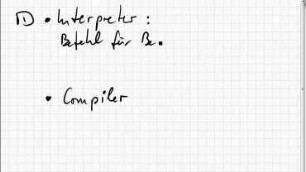 1) • Interpreter :
Befehl für Be.
• Compiler